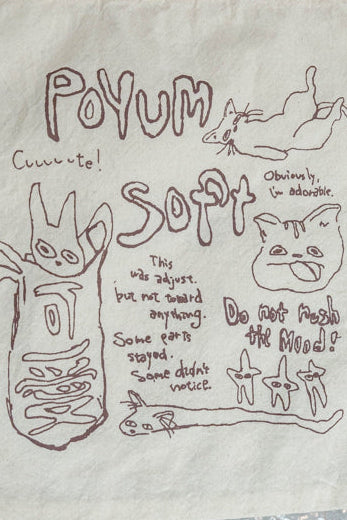 POYUM
Cuuuuute!
Soft
Obviously,
i'm adorable.
This
was adjust.
but not toward
anything.
Some parts
stayed.
Some didn't
notice.
Do not rush
the Mood!
可
愛